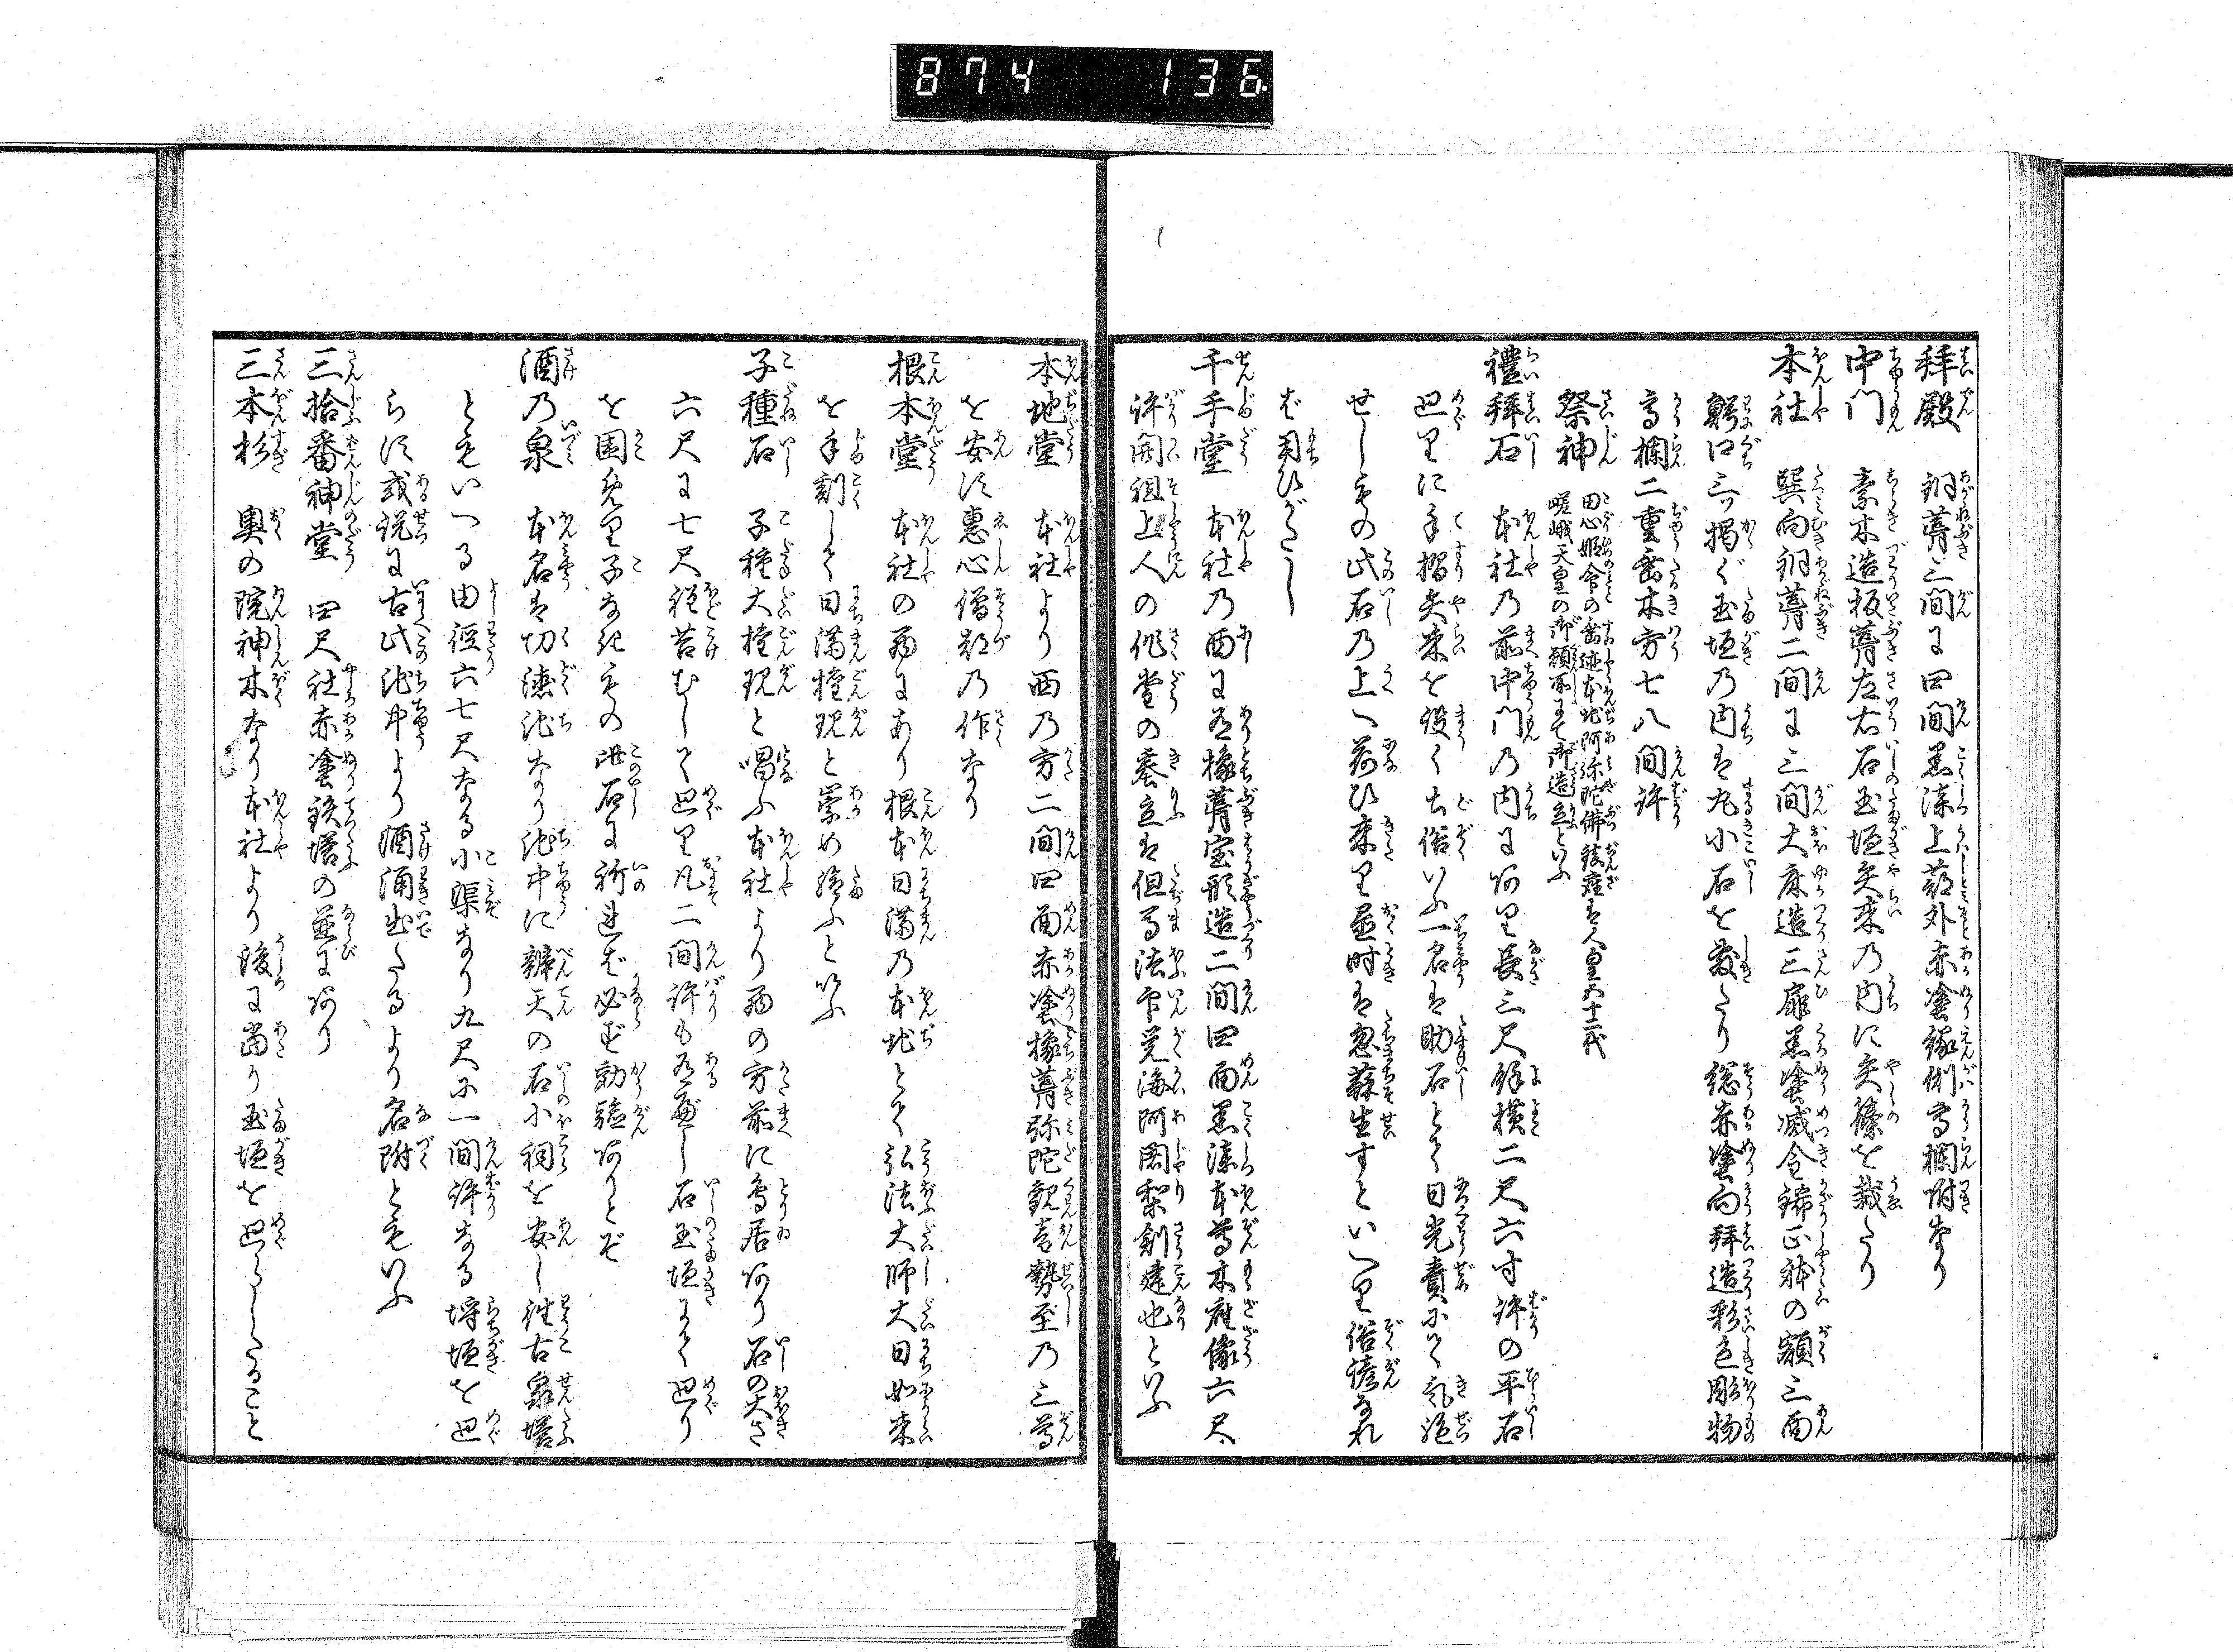 874 136
拝殿 銅葺三間に四間黒漆上蔀外赤塗縁側高欄附なり
中門 素木造板葺左右石玉垣矢来の内に矢篠を栽たり
本社 巽向銅葺二間に三間大床造三扉黒塗滅金錺正躰の額三面
鰐口三ッ掲ぐ玉垣の内は丸小石を敷たり総赤塗向拝造彩色彫物
高欄二重垂木方七八間許
祭神 田心姫命の垂迹本地阿弥陀佛鎮座は人皇五十二代
嵯峨天皇の御願所にて御造立といふ
禮拜石 本社の前中門の内にあり長三尺餘横二尺六寸許の平石
廻りに手摺矢来を設く土俗いふ一名は助石とて日光責にて気絶
せしもの此石の上へ荷ひ来り置時は忽蘇生すといへり俗談なれ
ば用ひがたし
千手堂 本社の西に有橡葺宝形造二間四面黒漆本尊木座像六尺
許開祖上人の作堂の基立は但馬法印覚海阿闍梨創建也といふ
本地堂 本社より西の方二間四面赤塗橡葺弥陀観音勢至の三尊
を安ず惠心僧都の作なり
根本堂 本社の西にあり根本日満の本地とて弘法大師大日如来
を手刻して日満権現と崇め給ふといふ
子種石 子種大権現と唱ふ本社より西の方前に鳥居あり石の大さ
六尺に七尺程苔むして廻り凡二間許も有べし石玉垣にて廻り
を囲めり子なきもの此石に祈れば必ず効験ありとぞ
酒の泉 本名は功徳池なり池中に辨天の石小祠を安し往古泉塔
ともいへる由徑六七尺なる小渠なり九尺に一間許なる埒垣を廻
らす或説に古此池中より酒涌出たるより名附ともいふ
三拾番神堂 四尺社赤塗鉄塔の並にあり
三本杉 奥の院神木なり本社より後に當り玉垣を廻らしたること